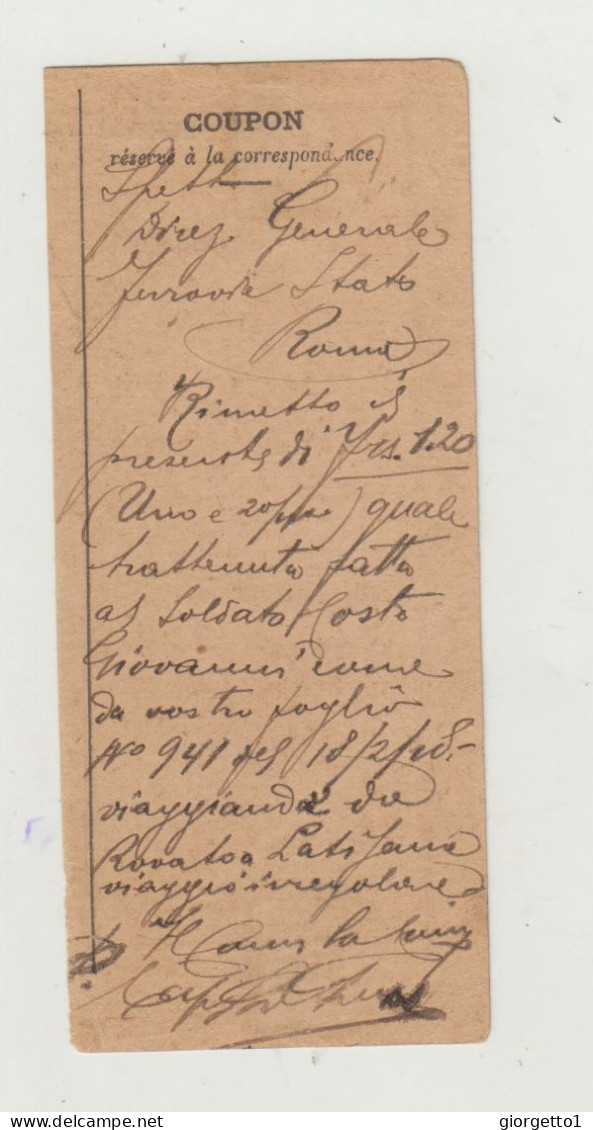 COUPON
réservé à la correspondance.
Spett
Direz Generale
Ferrovie Stato
Roma
Rimetto il
presente di Frs. 1.20
(Uno e 20/) quale
trattenuta fatta
al Soldato Costa
Giovanni come
da vostro foglio
No 941 del 18/2/18.-
viaggiando da
Rovato a Latisana
viaggio irregolare
delcampe.net
giorgetto1